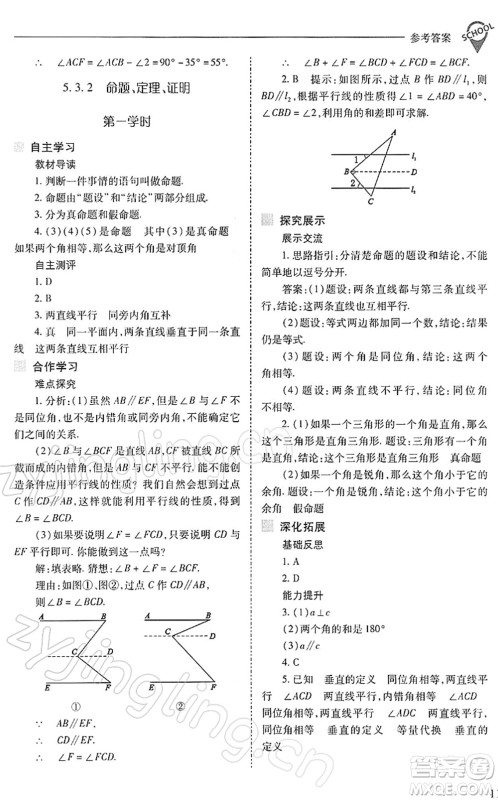 参考答案
SCHOOL
∴　∠ACF=∠ACB-∠2=90°-35°=55°.
5.3.2　命题、定理、证明
第一学时
自主学习
教材导读
1. 判断一件事情的语句叫做命题.
2. 命题由“题设”和“结论”两部分组成.
3. 分为真命题和假命题.
4. (3)(4)(5)是命题　其中(3)是真命题
如果两个角相等,那么这两个角是对顶角
自主测评
1. D
2. B
3. 两直线平行　同旁内角互补
4. 真　同一平面内,两条直线垂直于同一条直
线　这两条直线互相平行
合作学习
难点探究
1. 分析:(1)虽然AB∥EF,但是∠B与∠F不
是同位角,也不是内错角或同旁内角,不能确定它
们之间的关系.
(2)∠B与∠BCF是直线AB,CF被直线BC所
截而成的内错角,但是AB与CF不平行.能不能创
造条件应用平行线的性质?如果想到过点
C作CD∥AB,就能利用平行线的性质得到
∠B=∠BCD.
(3)如果要说明∠F=∠FCD,只要说明CD与
EF平行即可.你能做到这一点吗?
解:填表略.猜想:∠B+∠F=∠BCF.
理由:如图①、图②,过点C作CD∥AB,
则∠B=∠BCD.
A B
C
D
E F
①
A B
C
D
E F
②
∵　AB∥EF,CD∥AB,
∴　CD∥EF.
∴　∠F=∠FCD.
∴　∠B+∠F=∠BCD+∠FCD=∠BCF.
2. B　提示:如图,过点B作BD∥l₁,则
BD∥l₂,根据平行线的性质得∠1=∠ABD=40°,
∠CBD=∠2;利用角的和计算出∠2.
A
1
l₁
B
D
2
l₂
C
探究展示
展示交流
1. 思路指引:分清楚命题的题设和结论,结论
可以逗号分开.
答案:(1)题设:两条直线都与第三条直线平
行,结论:这两条直线也互相平行.
(2)题设:等式两边都加同一个数,结论:结果
仍是等式.
(3)题设:两个角是同位角,结论:这两个角
相等.
2. (1)如果一个三角形的一个角是直角,那么
这个三角形是直角三角形.题设:一个三角形的一
个角是直角,结论:这个三角形是直角三角形　真
命题
(2)如果一个角是锐角,那么这个角小于它的
余角.题设:一个角是锐角,结论:这个角小于它的
余角　假命题
深化拓展
基础反思
1. A
2. D
能力提升
3. (1)a⊥c
(2)两个角的和是180°
(3)a∥c
4. C
5. 已知　垂直的定义　同位角相等,两直线
平行　∠ACD　两直线平行,内错角相等　∠ACD
同位角相等,两直线平行　∠ADC　两直线平行,
同位角相等　垂直的定义　等量代换　垂直的
定义
zyjl.cn
zyjingling.com